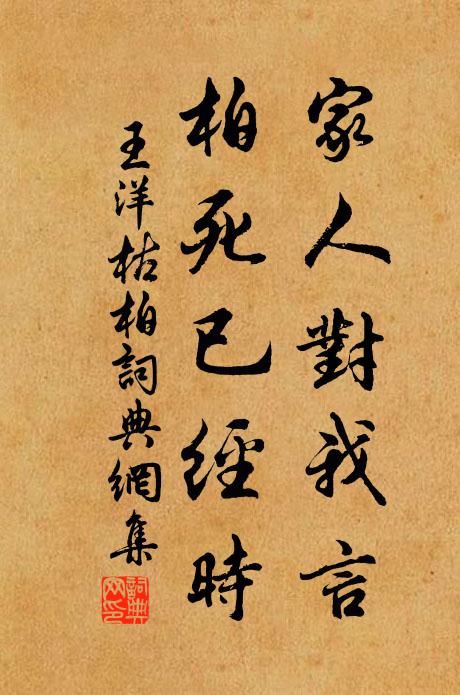 家人對我言
柏死已經時
王洋枯柏詞典網集
詞典網印